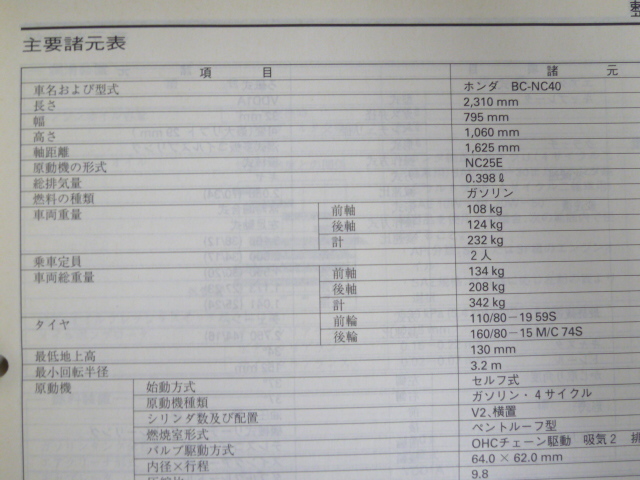 主要諸元表
項 目 諸 元
車名および型式 ホンダ BC-NC40
長さ 2,310 mm
幅 795 mm
高さ 1,060 mm
軸距離 1,625 mm
原動機の形式 NC25E
総排気量 0.398ℓ
燃料の種類 ガソリン
車両重量 前軸 108 kg
後軸 124 kg
計 232 kg
乗車定員 2人
車両総重量 前軸 134 kg
後軸 208 kg
計 342 kg
タイヤ 前輪 110/80-19 59S
後輪 160/80-15 M/C 74S
最低地上高 130 mm
最小回転半径 3.2 m
原動機 始動方式 セルフ式
原動機種類 ガソリン・4サイクル
シリンダ数及び配置 V2、横置
燃焼室形式 ペントルーフ型
バルブ駆動方式 OHCチェーン駆動 吸気2 排
内径×行程 64.0 × 62.0 mm
9.8